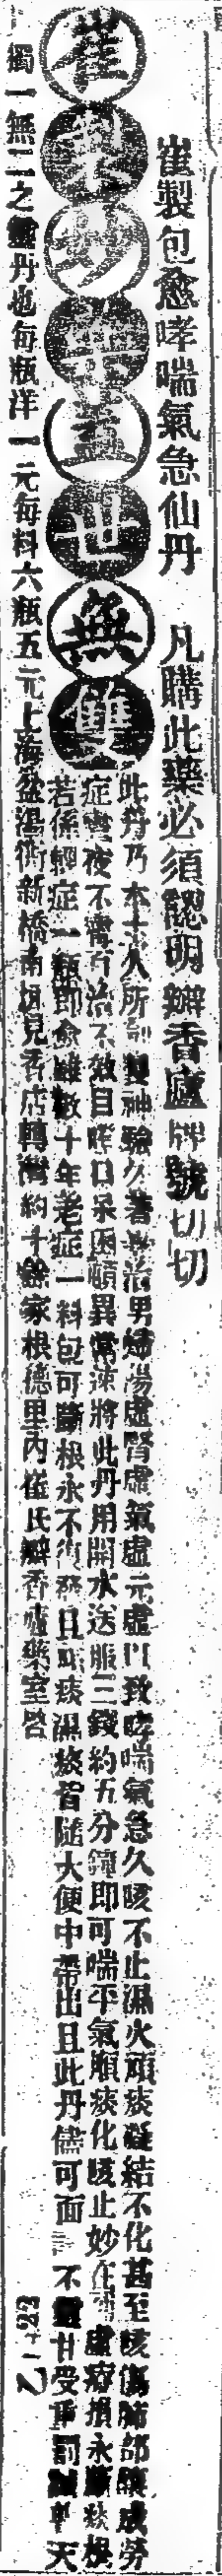 崔製包愈哮喘氣急仙丹 凡購此藥必須認明辦香廬牌號切切
崔製妙藥蓋世無雙
此丹乃本主人所創製神驗久著專治男婦陽虛腎虛氣虛元虛以致哮喘氣急久咳不止濕火頑痰凝結不化甚至咳傷肺部釀成勞
症晝夜不寧百治不效目眩口呆困頓異常速將此丹用開水送服三錢約五分鐘即可喘平氣順痰化咳止妙在 虛療損永斷痰根
若係輕症一瓶即愈雖數十年老症一料包可斷根永不復發且咳痰濕痰皆隨大便中帶出且此丹儘可面 不靈甘受重罰 天
獨一無二之靈丹也每瓶洋一元每料六瓶五元上海盆湯衖新橋南堍見香店轉灣約十餘家根德里內崔氏辦香廬藥室啓
乙一二23